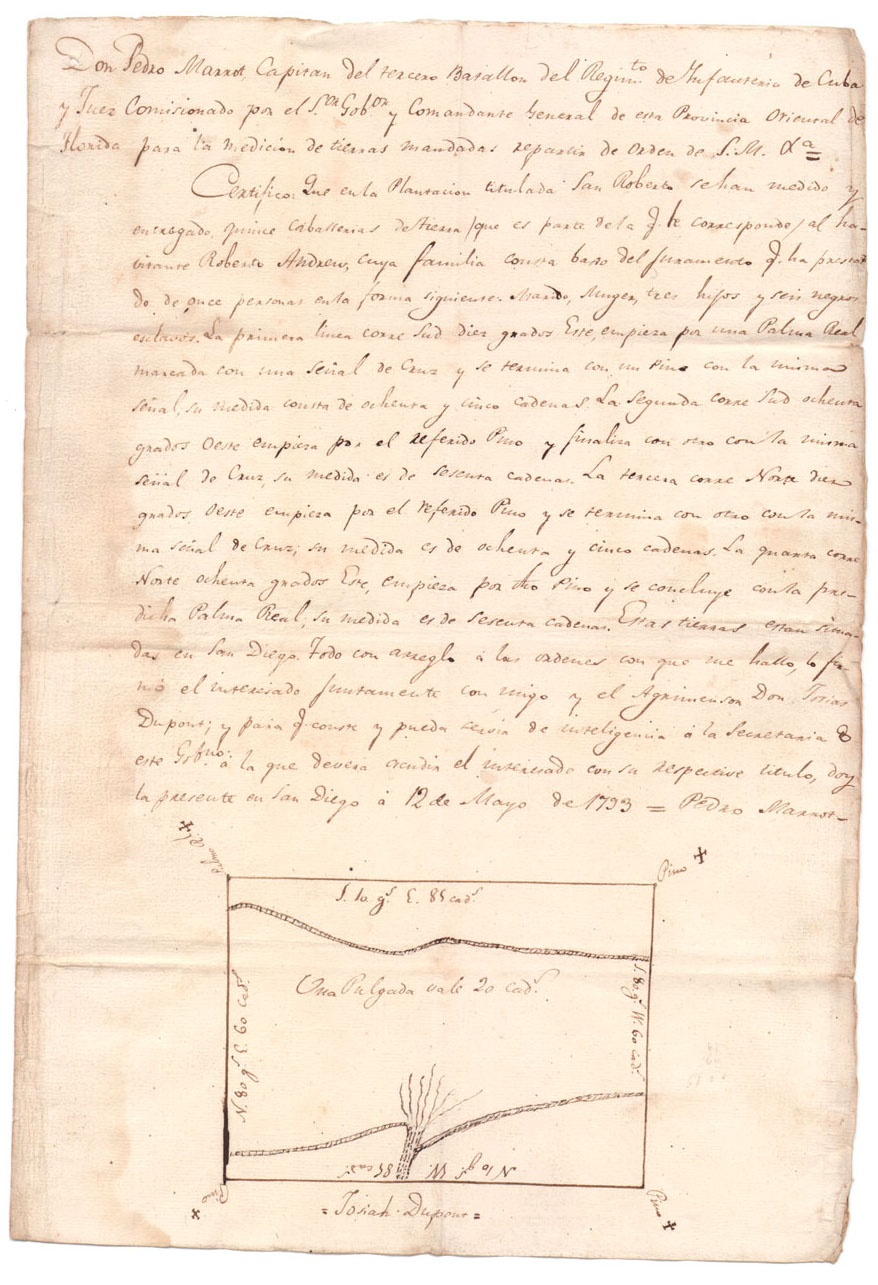 Don Pedro Marrot, Capitan del tercero Batallon del Regim.to de Infanteria de Cuba
y Juez Comisionado por el S.or Gob.or y Comandante General de esta Provincia Oriental de
Florida para la medición de tierras mandadas repartir de Orden de S. M. &a
Certifico: Que en la Plantacion titulada San Roberto se han medido y
entregado, quince Caballerias de tierra /que es parte de la q.e le corresponde/ al ha-
vitante Roberto Andrew, cuya familia consta bajo del Juramento q.e ha presta-
do de once personas en la forma siguiente. Marido, Muger, tres hijos y seis negros
esclavos. La primera linea corre Sud diez grados Este, empieza por una Palma Real
marcada con una señal de Cruz y se termina con un Pino con la misma
señal, su medida consta de ochenta y cinco cadenas. La segunda corre Sud ochenta
grados Oeste empieza por el referido Pino y finaliza con otro con la misma
señal de Cruz, su medida es de sesenta cadenas. La tercera corre Norte diez
grados Oeste empieza por el referido Pino y se termina con otro con la mis-
ma señal de Cruz; su medida es de ochenta y cinco cadenas. La quarta corre
Norte ochenta grados Este, empieza por dho Pino y se concluye con la pre-
dicha Palma Real, su medida es de sesenta cadenas. Estas tierras estan situa-
das en San Diego. Todo con arreglo á las ordenes con que me hallo, lo fir-
mó el interesado juntamente con migo y el Agrimensor Don Josias
Dupont; y para q.e conste y pueda servir de inteligencia á la Secretaria de
este Gob.no á la que devera acudir el interesado con su respective titulo, doy
la presente en San Diego á 12 de Mayo de 1793 = Pedro Marrot
Palma Rl.
Pino
S. 10 g.s E. 85 cad.s
Una Pulgada vale 20 cad.s
S. 80 g.s W. 60 cad.s
N. 80 g.s E. 60 cad.s
N 10 g.s W. 85 cad.s
Pino
Pino
= Josiah Dupont =